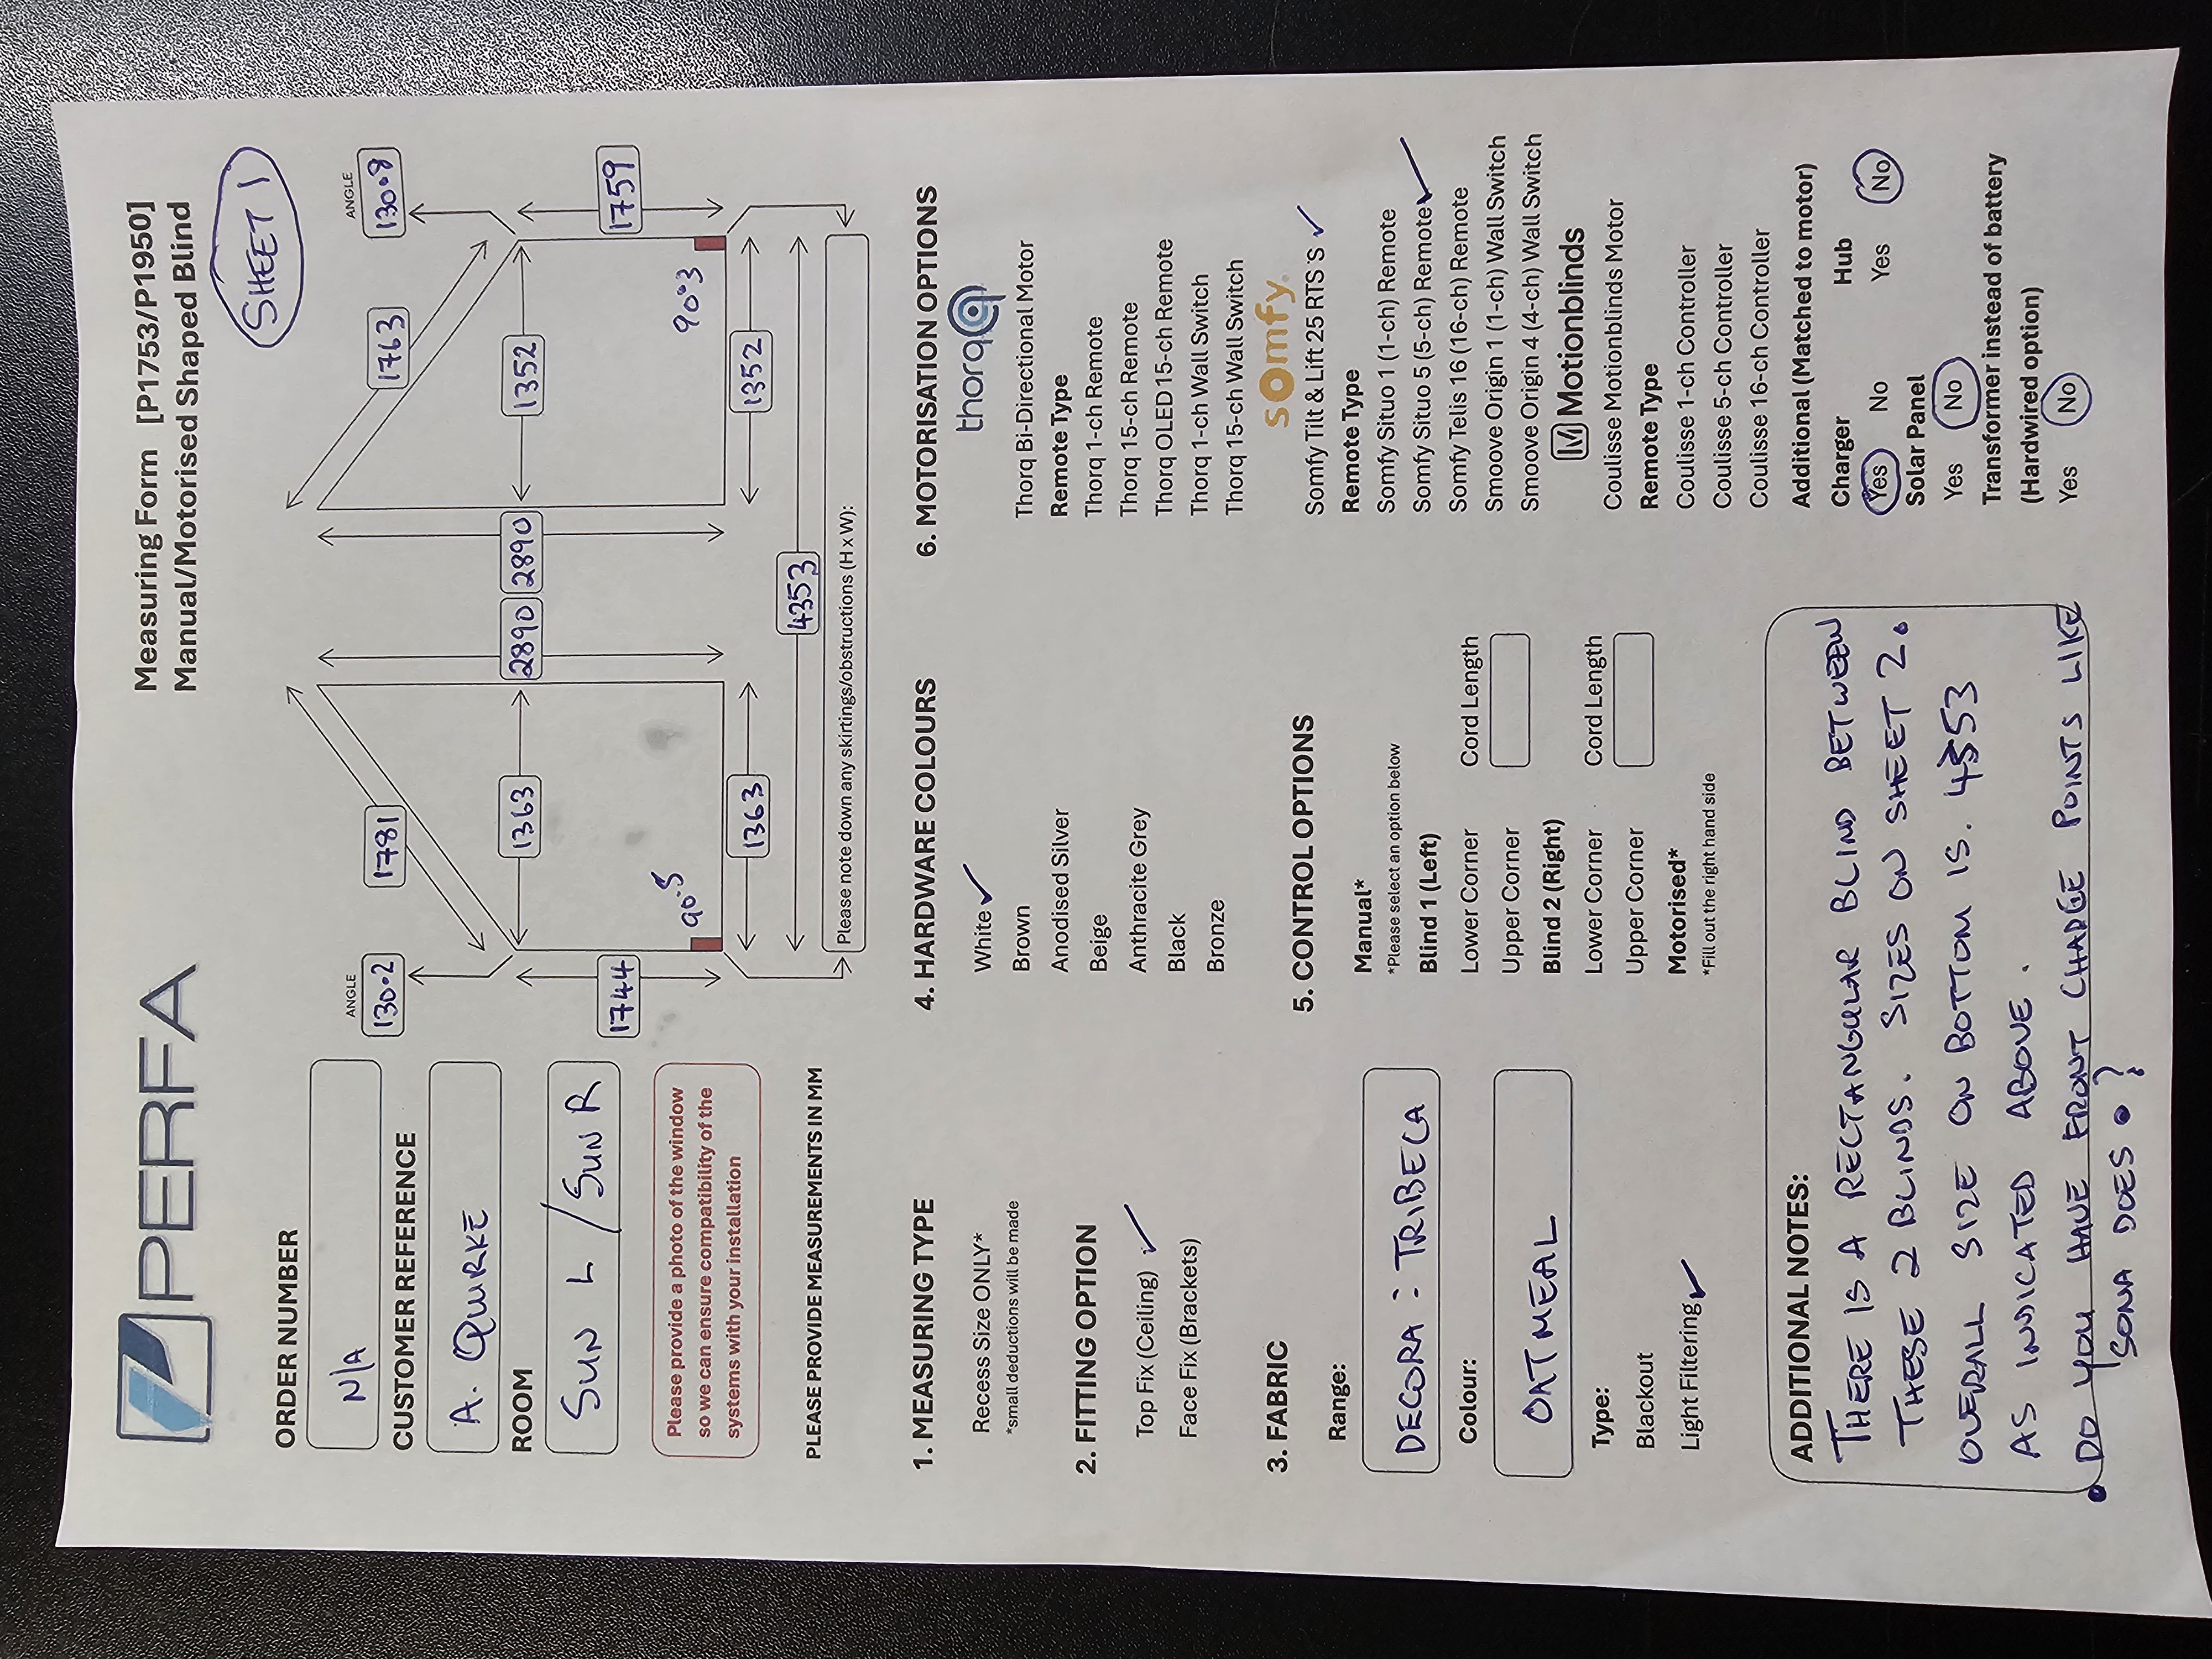 PERFA
Measuring Form [P1753/P1950]
Manual/Motorised Shaped Blind
SHEET 1
ORDER NUMBER
N/A
CUSTOMER REFERENCE
A. QUIRKE
ROOM
SUN L / SUN R
Please provide a photo of the window
so we can ensure compatibility of the
systems with your installation
PLEASE PROVIDE MEASUREMENTS IN MM
ANGLE
130.2
1781
1744
1363
90.5
1363
2890
2890
1763
ANGLE
130.8
1352
1759
90.3
1352
4353
Please note down any skirtings/obstructions (H x W):
1. MEASURING TYPE
Recess Size ONLY*
*small deductions will be made
2. FITTING OPTION
Top Fix (Ceiling) ✓
Face Fix (Brackets)
3. FABRIC
Range:
DECORA : TRIBECA
Colour:
OATMEAL
Type:
Blackout
Light Filtering ✓
4. HARDWARE COLOURS
White ✓
Brown
Anodised Silver
Beige
Anthracite Grey
Black
Bronze
5. CONTROL OPTIONS
Manual*
*Please select an option below
Blind 1 (Left)
Lower Corner Cord Length
Upper Corner
Blind 2 (Right)
Lower Corner Cord Length
Upper Corner
Motorised*
*Fill out the right hand side
6. MOTORISATION OPTIONS
thorq
Thorq Bi-Directional Motor
Remote Type
Thorq 1-ch Remote
Thorq 15-ch Remote
Thorq OLED 15-ch Remote
Thorq 1-ch Wall Switch
Thorq 15-ch Wall Switch
somfy.
Somfy Tilt & Lift 25 RTS S ✓
Remote Type
Somfy Situo 1 (1-ch) Remote
Somfy Situo 5 (5-ch) Remote ✓
Somfy Telis 16 (16-ch) Remote
Smoove Origin 1 (1-ch) Wall Switch
Smoove Origin 4 (4-ch) Wall Switch
M Motionblinds
Coulisse Motionblinds Motor
Remote Type
Coulisse 1-ch Controller
Coulisse 5-ch Controller
Coulisse 16-ch Controller
Additional (Matched to motor)
Charger Hub
Yes No Yes No
Solar Panel
Yes No
Transformer instead of battery
(Hardwired option)
Yes No
ADDITIONAL NOTES:
THERE IS A RECTANGULAR BLIND BETWEEN
THESE 2 BLINDS. SIZES ON SHEET 2.
OVERALL SIZE ON BOTTOM IS. 4353
AS INDICATED ABOVE.
• DO YOU HAVE FRONT CHARGE POINTS LIKE
SONA DOES ?